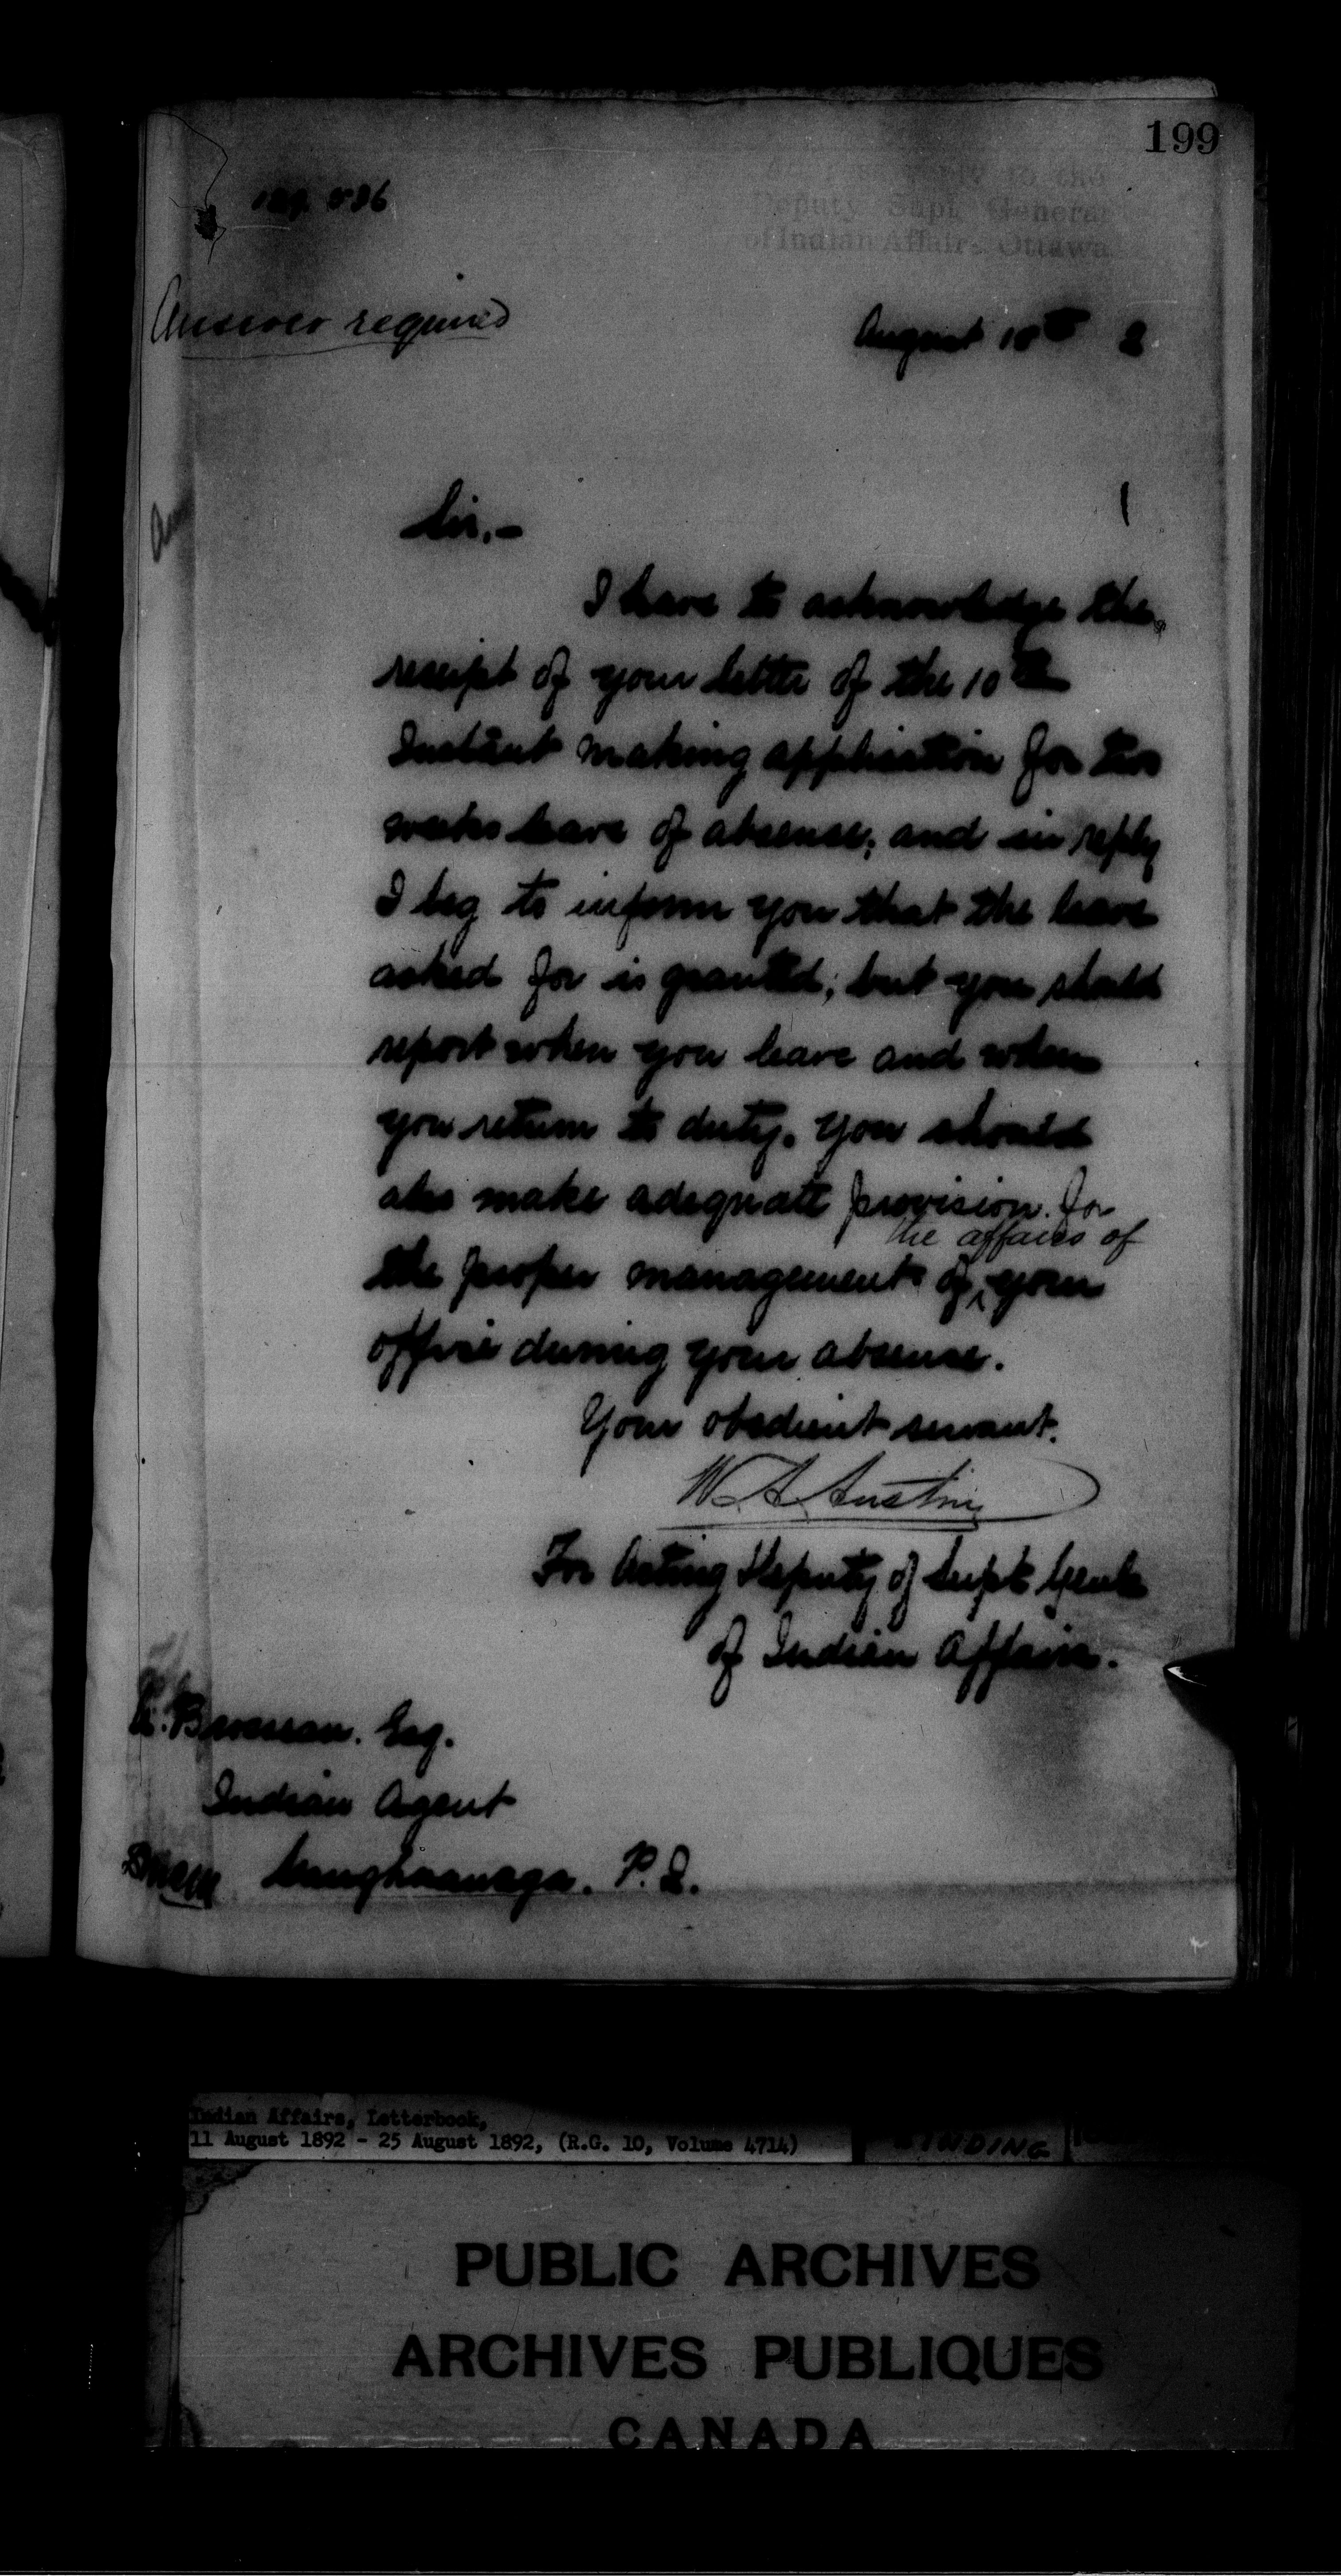 199
Deputy Supt. General
of Indian Affairs Ottawa
Answer required
August 18th 2
Sir,-
I have to acknowledge the
receipt of your letter of the 10th
Instant making application for two
weeks leave of absense; and in reply
I beg to inform you that the leave
asked for is granted; but you should
report when you leave and when
you return to duty. You should
also make adequate provision for
the affairs of
the proper management of ‸ your
office during your absense.
Your obedient servant.
W A Austin
For Acting Deputy of Supt Genl
of Indian Affairs.
Brosseau. Esq.
Indian Agent
Caughnawaga. P.Q.
Indian Affairs, Letterbook,
11 August 1892 - 25 August 1892, (R.G. 10, Volume 4714)
PUBLIC ARCHIVES
ARCHIVES PUBLIQUES
CANADA